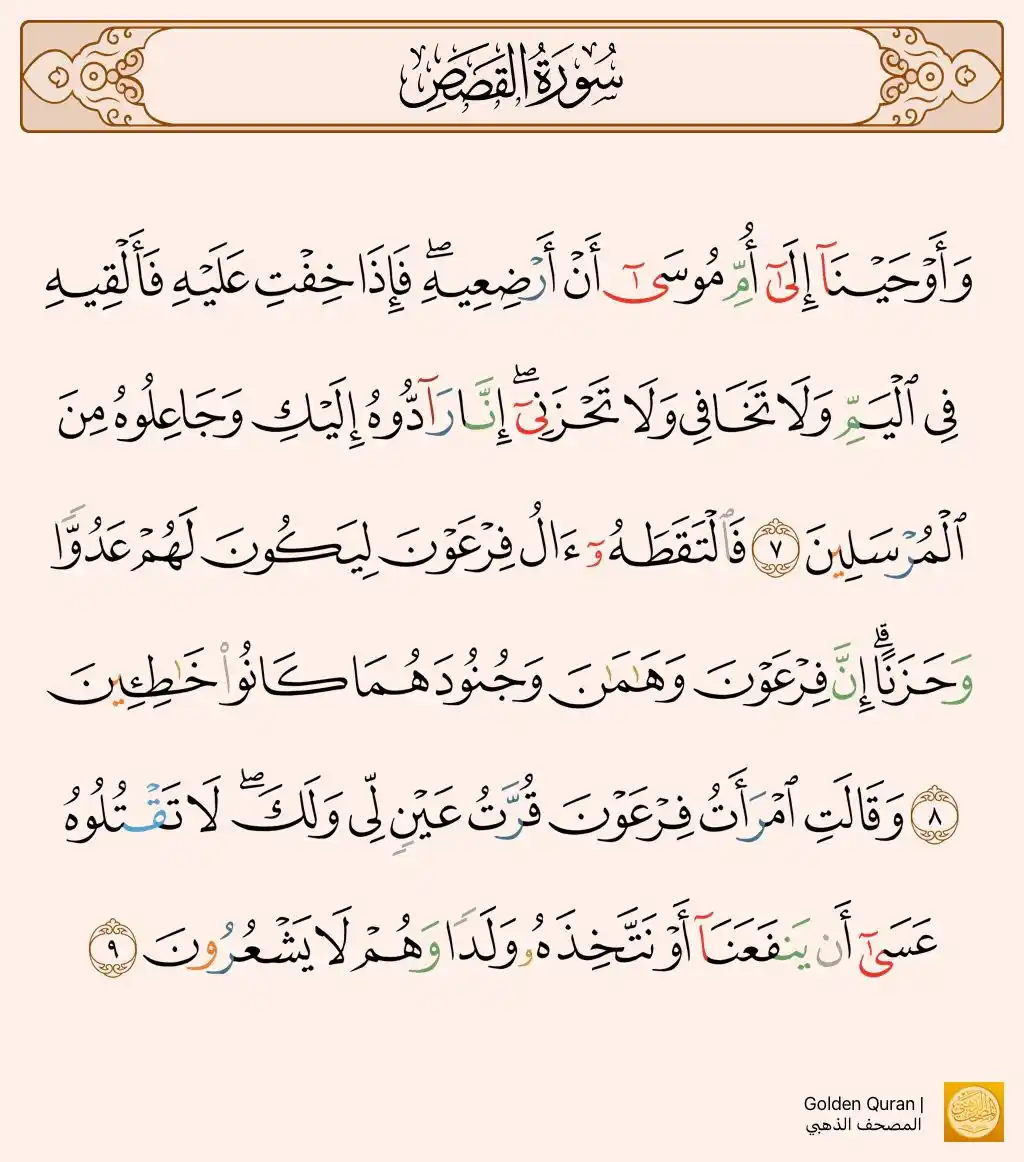 سُورَةُ القَصَصِ
وَأَوْحَيْنَآ إِلَىٰٓ أُمِّ مُوسَىٰٓ أَنْ أَرْضِعِيهِ ۖ فَإِذَا خِفْتِ عَلَيْهِ فَأَلْقِيهِ
فِى ٱلْيَمِّ وَلَا تَخَافِى وَلَا تَحْزَنِىٓ ۖ إِنَّا رَآدُّوهُ إِلَيْكِ وَجَاعِلُوهُ مِنَ
ٱلْمُرْسَلِينَ ٧ فَٱلْتَقَطَهُۥٓ ءَالُ فِرْعَوْنَ لِيَكُونَ لَهُمْ عَدُوًّا
وَحَزَنًا ۗ إِنَّ فِرْعَوْنَ وَهَـٰمَـٰنَ وَجُنُودَهُمَا كَانُوا۟ خَـٰطِـِٔينَ
٨ وَقَالَتِ ٱمْرَأَتُ فِرْعَوْنَ قُرَّتُ عَيْنٍ لِّى وَلَكَ ۖ لَا تَقْتُلُوهُ
عَسَىٰٓ أَن يَنفَعَنَآ أَوْ نَتَّخِذَهُۥ وَلَدًا وَهُمْ لَا يَشْعُرُونَ ٩
Golden Quran |
المصحف الذهبي